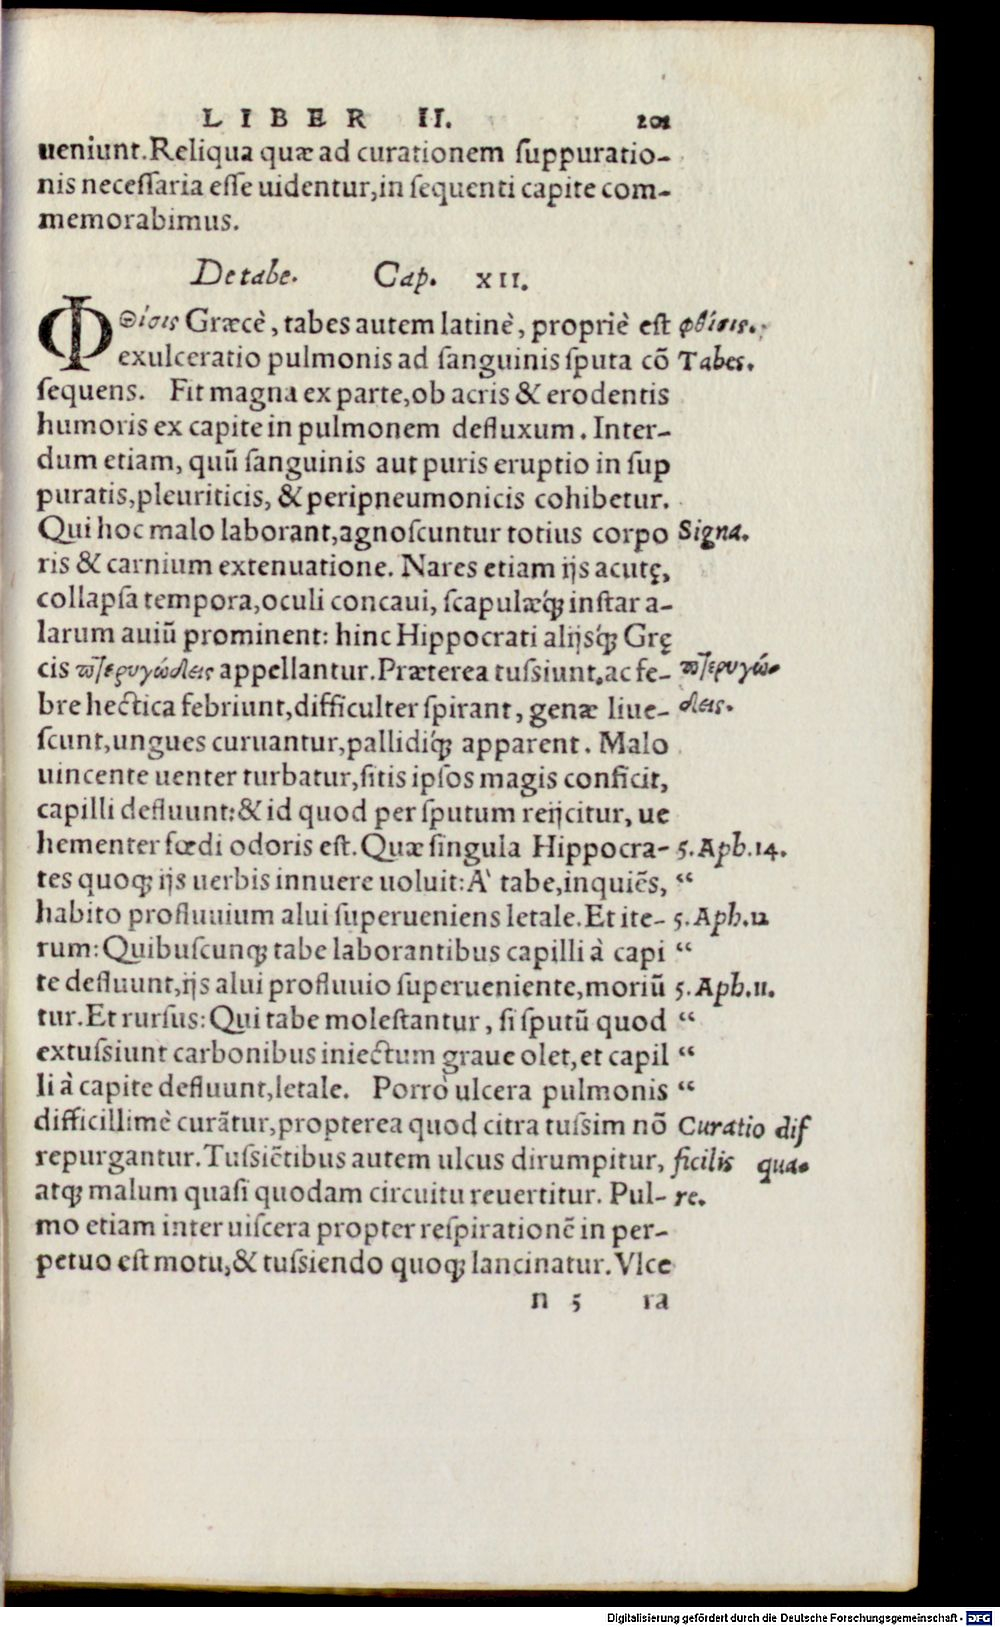 LIBER II. 201
ueniunt. Reliqua quæ ad curationem ſuppuratio-
nis neceſſaria eſſe uidentur, in ſequenti capite com-
memorabimus.
De tabe. Cap. XII.
Φθίσις Græcè, tabes autem latinè, propriè eſt φθίσις.
exulceratio pulmonis ad ſanguinis ſputa cō Tabes.
ſequens. Fit magna ex parte, ob acris & erodentis
humoris ex capite in pulmonem defluxum. Inter-
dum etiam, quū ſanguinis aut puris eruptio in ſup
puratis, pleuriticis, & peripneumonicis cohibetur.
Qui hoc malo laborant, agnoſcuntur totius corpo Signa.
ris & carnium extenuatione. Nares etiam ijs acutę,
collapſa tempora, oculi concaui, ſcapulæq́ꝫ inſtar a-
larum auiū prominent: hinc Hippocrati alijsq́ꝫ Grę
cis πτερυγώδεις appellantur. Præterea tuſsiunt, ac fe- πτερυγώ-
bre hectica febriunt, difficulter ſpirant, genæ liue- δεις.
ſcunt, ungues curuantur, pallidiq́ꝫ apparent. Malo
uincente uenter turbatur, ſitis ipſos magis conficit,
capilli defluunt: & id quod per ſputum reijcitur, ue
hementer fœdi odoris eſt. Quæ ſingula Hippocra- 5. Aph. 14.
tes quoqꝫ ijs uerbis innuere uoluit: A` tabe, inquiēs, “
habito profluuium alui ſuperueniens letale. Et ite- 5. Aph. 12
rum: Quibuſcunqꝫ tabe laborantibus capilli à capi “
te defluunt, ijs alui profluuio ſuperueniente, moriū 5. Aph. 11.
tur. Et rurſus: Qui tabe moleſtantur, ſi ſputū quod “
extuſsiunt carbonibus iniectum graue olet, et capil “
li à capite defluunt, letale. Porrò ulcera pulmonis “
difficillimè curātur, propterea quod citra tuſsim nō Curatio dif
repurgantur. Tuſsiētibus autem ulcus dirumpitur, ficilis qua-
atqꝫ malum quaſi quodam circuitu reuertitur. Pul- re.
mo etiam inter uiſcera propter reſpirationē in per-
petuo eſt motu, & tuſsiendo quoqꝫ lancinatur. Vlce
n 5 ra
Digitalisierung gefördert durch die Deutsche Forschungsgemeinschaft - DFG